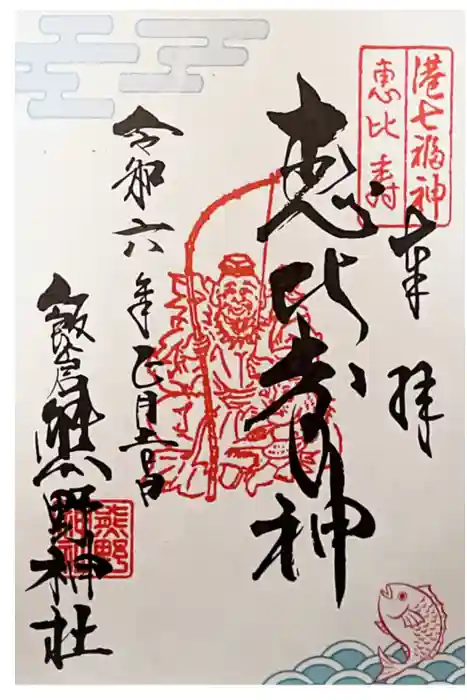 港七福神
恵比寿
奉拝
恵比寿神
令和六年正月五日
飯倉熊野神社
熊野
神社